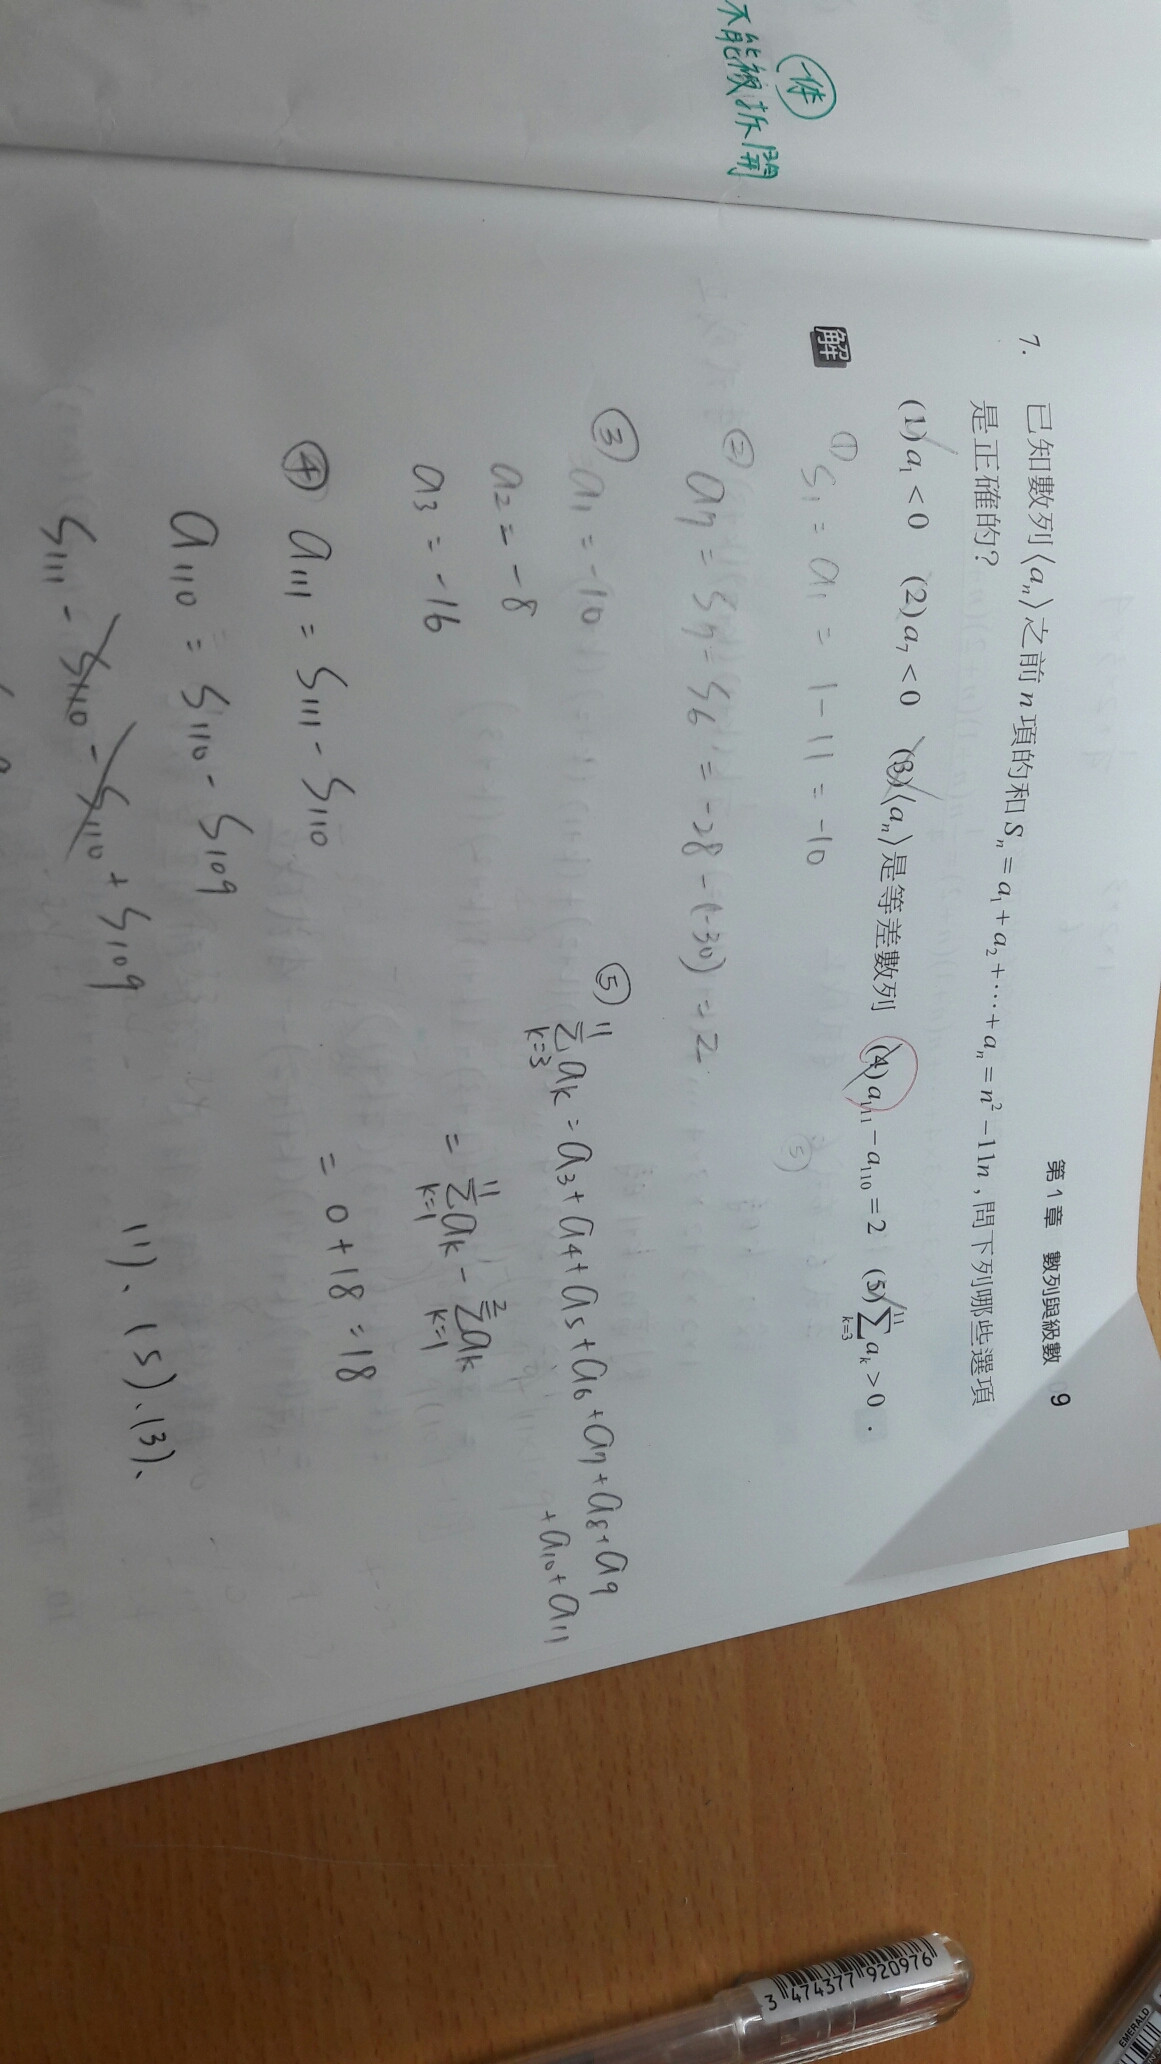 第1章 數列與級數 9
7. 已知數列⟨aₙ⟩之前n項的和Sₙ=a₁+a₂+⋯+aₙ=n²-11n,問下列哪些選項
是正確的?
(1)a₁<0 (2)a₇<0 (3)⟨aₙ⟩是等差數列 (4)a₁₁₁-a₁₁₀=2 (5)∑ₖ₌₃¹¹aₖ>0.
解
① S₁=a₁=1-11=-10
② a₇=S₇-S₆=-28-(-30)=2
③ a₁=-10
a₂=-8
a₃=-16
④ a₁₁₁=S₁₁₁-S₁₁₀
a₁₁₀=S₁₁₀-S₁₀₉
S₁₁₁-S₁₁₀-S₁₁₀+S₁₀₉
⑤ ∑ₖ₌₃¹¹aₖ=a₃+a₄+a₅+a₆+a₇+a₈+a₉
+a₁₀+a₁₁
=∑ₖ₌₁¹¹aₖ-∑ₖ₌₁²aₖ
=0+18=18
(1)、(5)、(3)、
一体
不能被拆開
3 474377 920976
EMERALD